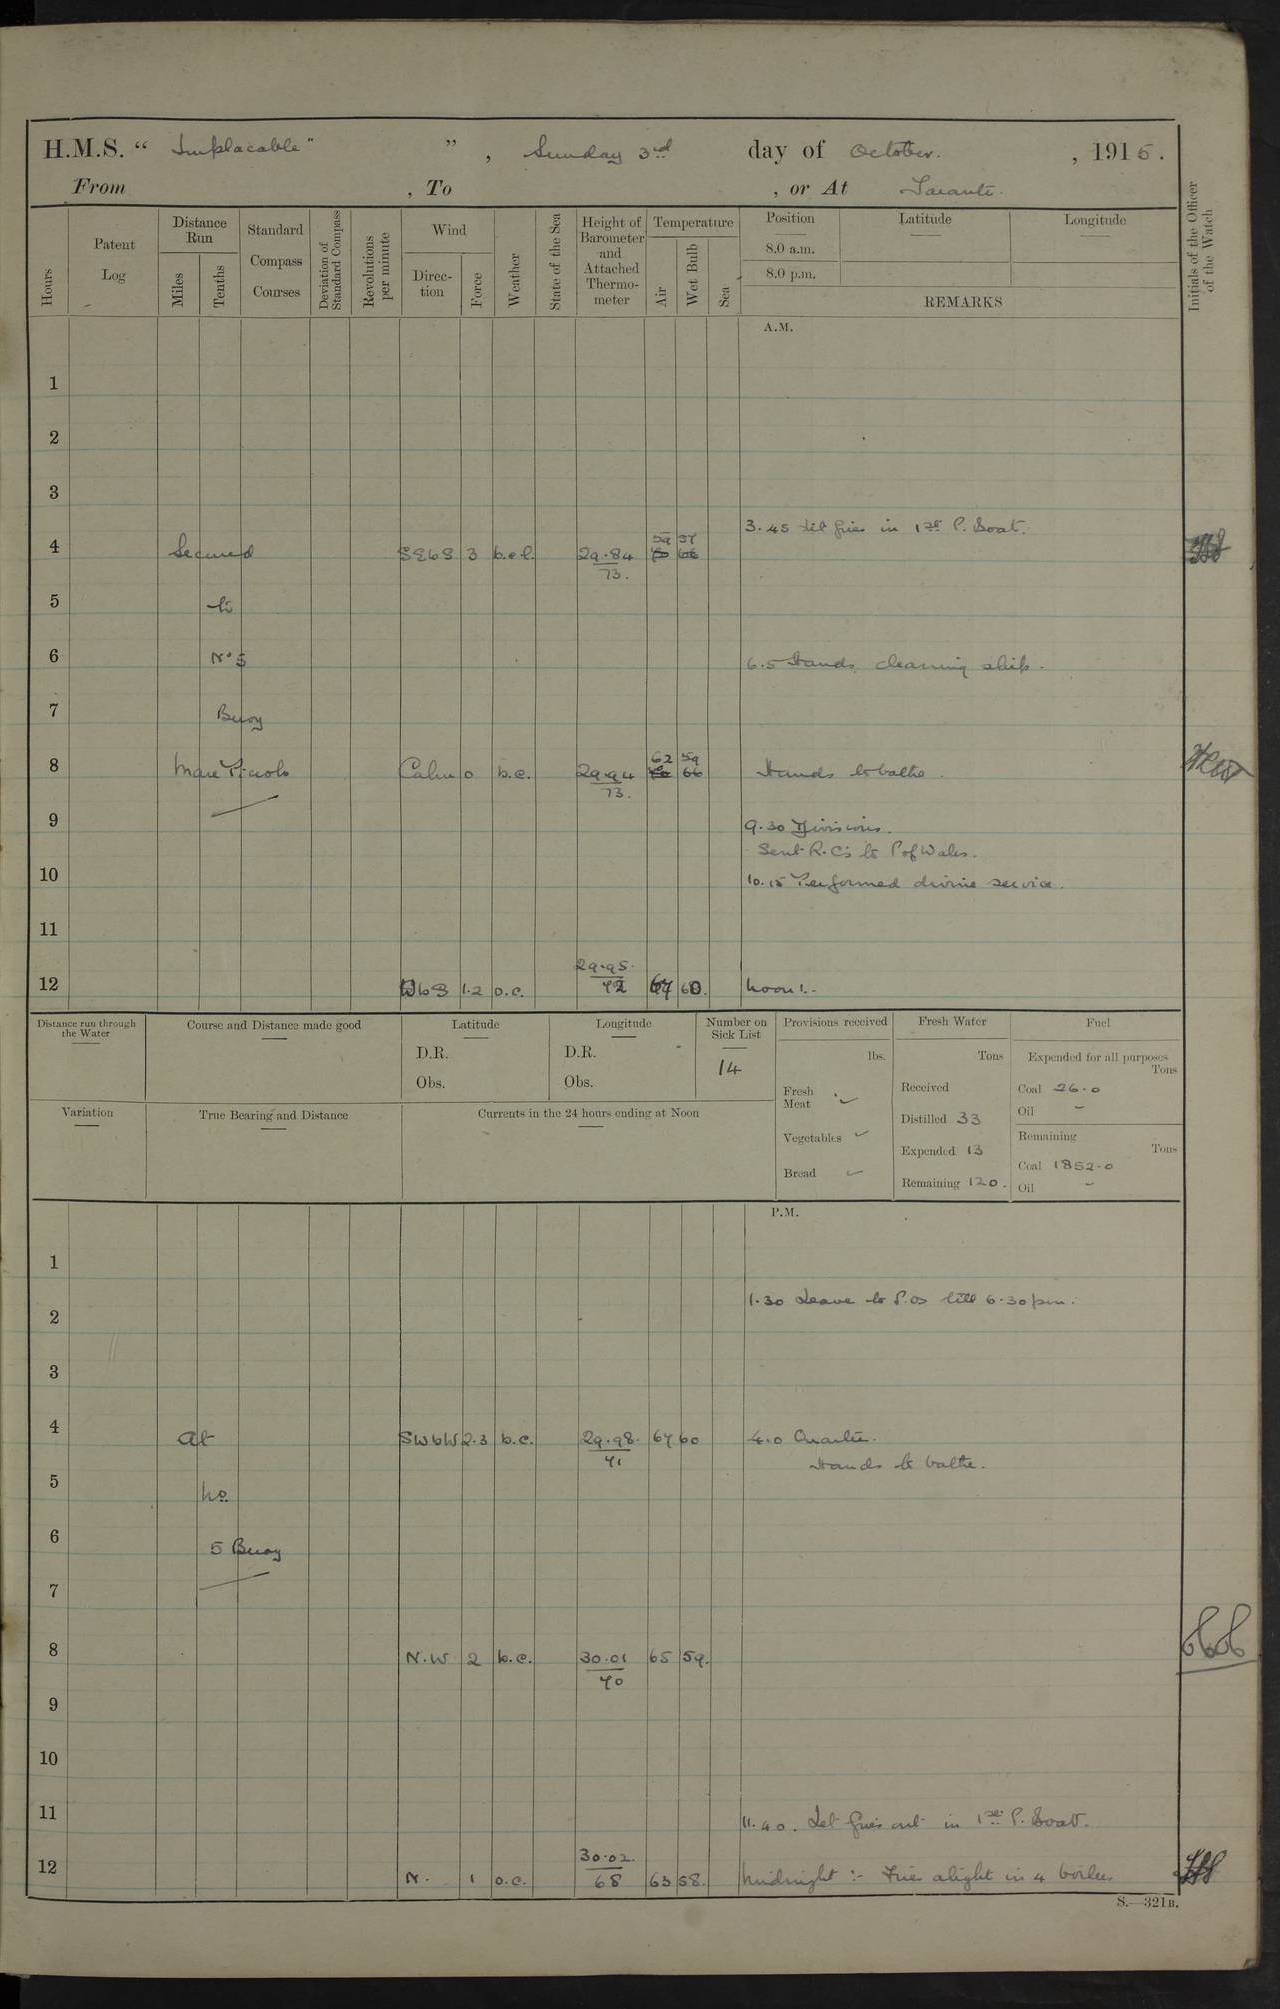 H.M.S. “ Implacable" ” , Sunday 3rd day of October. , 1915.
From , To , or At Taranto.
Hours
Patent Log
Distance Run
Miles
Tenths
Standard Compass Courses
Deviation of Standard Compass
Revolutions per minute
Wind
Direc-tion
Force
Weather
State of the Sea
Height of Barometer and Attached Thermo-meter
Temperature
Air
Wet Bulb
Sea
Position
8.0 a.m.
8.0 p.m.
Latitude
Longitude
REMARKS
Initials of the Officer of the Watch
A.M.
1
2
3
3.45 Lit fires in 1st P. Boat.
59 57
4 Secured SEbS 3 b.c.l. 29.84
73.
5 to
6 No 5 6.5 Hands cleaning ship.
7 Buoy
62 59
8 Mare Piccolo Calm 0 b.c. 29.94 66 Hands to bathe.
73.
9 9.30 Divisions.
Sent R.C's to P of Wales.
10 10.15 Performed divine service.
11
29.95.
12 WbS 1.2 o.c. 72 67 60. Noon :-
Distance run through the Water
Course and Distance made good
Latitude
D.R.
Obs.
Longitude
D.R.
Obs.
Number on Sick List
14
Provisions received
lbs.
Fresh Meat
Vegetables
Bread
Fresh Water
Tons
Received
Distilled 33
Expended 13
Remaining 120.
Fuel
Expended for all purposes
Tons
Coal 26.0
Oil -
Remaining
Tons
Coal 1852.0
Oil -
Variation
True Bearing and Distance
Currents in the 24 hours ending at Noon
P.M.
1
1.30 Leave to P.Os till 6.30 pm.
2
3
4 At SWbW 2.3 b.c. 29.98. 67 60 4.0 Quarters.
71
Hands to bathe.
5 No
6 5 Buoy
7
8 N.W 2 b.c. 30.01 65 59.
70
9
10
11 11.40. Let fires out in 1st P. Boat.
30.02.
12 N. 1 o.c. 68 63 58. Midnight :- Fires alight in 4 boilers
S.—321B.